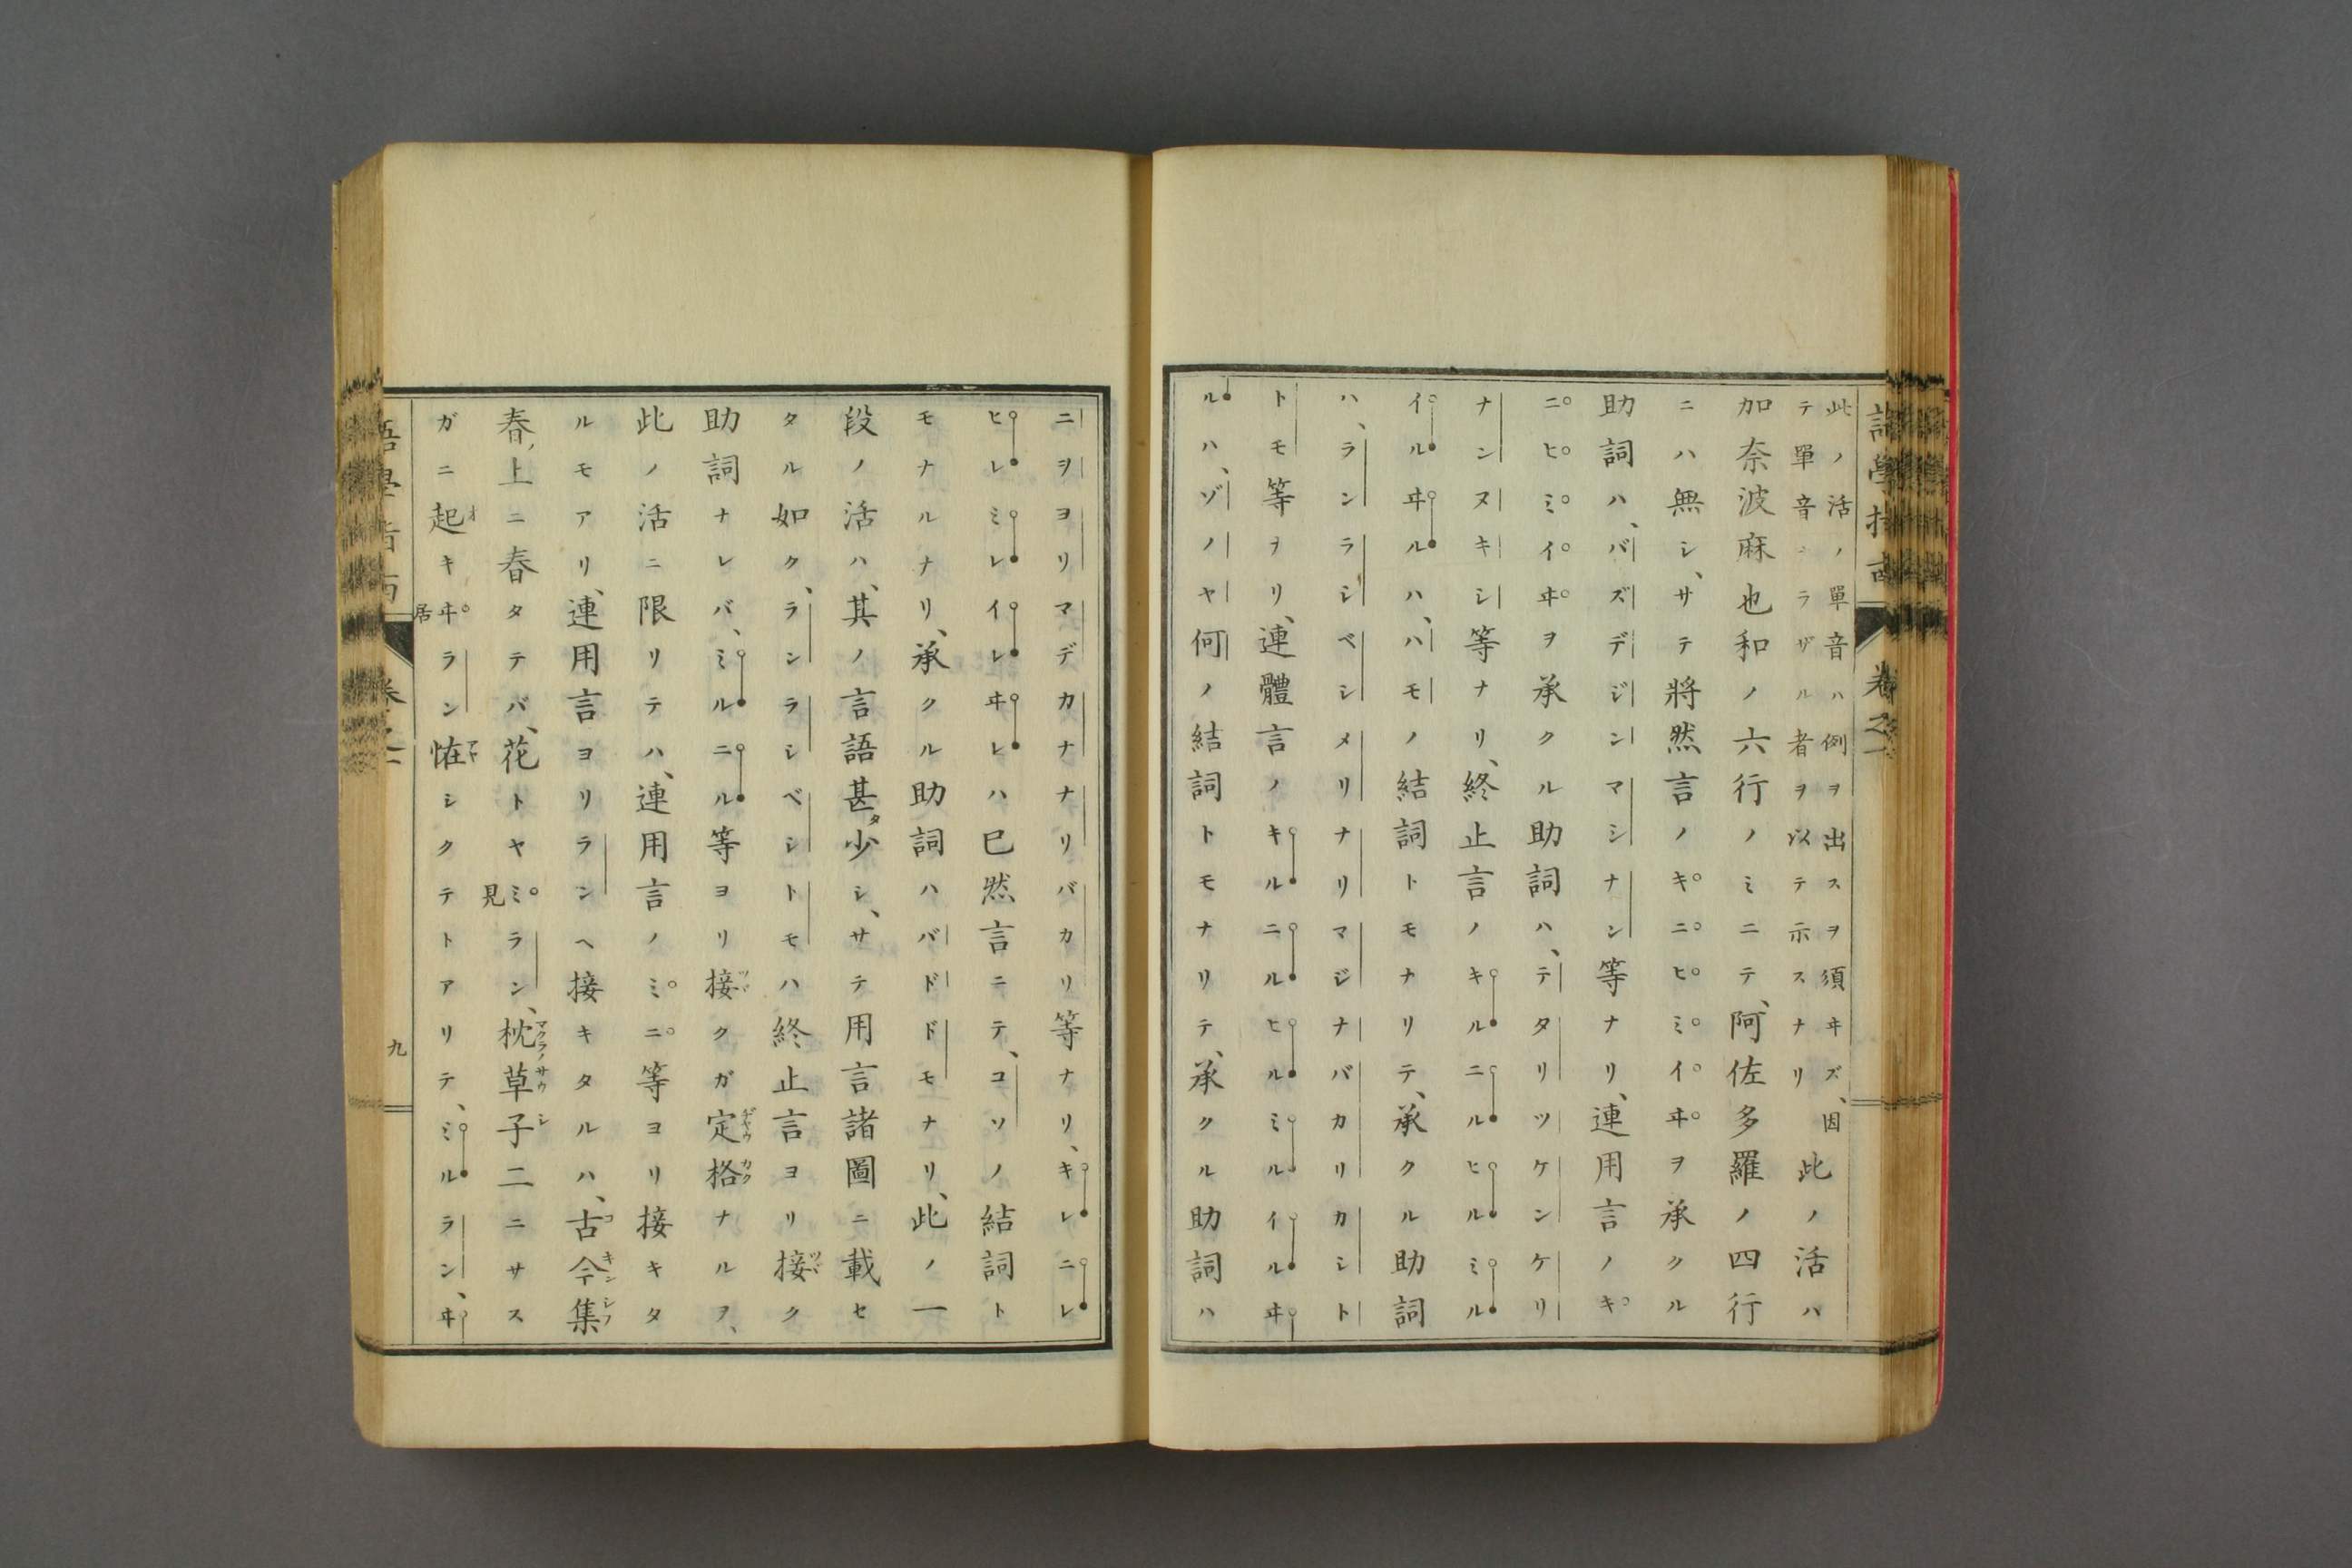 語學指南
卷之一
此ノ活ノ單音ハ例ヲ出スヲ須ヰズ、因
テ單音ニラザル者ヲ以テ示スナリ
此ノ活ハ
加奈波麻也和ノ六行ノミニテ、阿佐多羅ノ四行
ニハ無シ、サテ將然言ノキニヒミイヰヲ承クル
助詞ハ、バズデジンマシナン等ナリ、連用言ノキ
ニヒミイヰヲ承クル助詞ハ、テタリツケンケリ
ナンヌキシ等ナリ、終止言ノキルニルヒルミル
イルヰルハ、ハモノ結詞トモナリテ、承クル助詞
ハ、ランラシベシメリナリマジナバカリカシト
トモ等ヲリ、連體言ノキルニルヒルミルイルヰ
ルハ、ゾノヤ何ノ結詞トモナリテ、承クル助詞ハ
ニヲヨリマデカナナリバカリ等ナリ、キレニレ
ヒレミレイレヰレハ已然言ニテ、コソノ結詞ト
モナルナリ、承クル助詞ハバドドモナリ、此ノ一
段ノ活ハ、其ノ言語甚ダ少シ、サテ用言諸圖ニ載セ
タル如ク、ランラシベシトモハ終止言ヨリ接ク
助詞ナレバ、ミルニル等ヨリ接クガ定格ナルヲ、
此ノ活ニ限リテハ、連用言ノミニ等ヨリ接キタ
ルモアリ、連用言ヨリランヘ接キタルハ、古今集
春ノ上ニ春タテバ、花トヤミ見ラン、枕草子二ニサス
ガニ起キヰ居ラン恠シクテトアリテ、ミルラン、ヰ
語學指南
卷之一
九